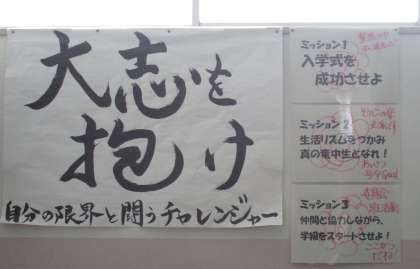 大志を
抱け
自分の限界と闘うチャレンジャー
ミッション1
入学式を
成功させよ
ミッション2
生活リズムをつかみ
真の竜中生となれ!
ミッション3
仲間と協力しながら、
学級をスタートさせよ!